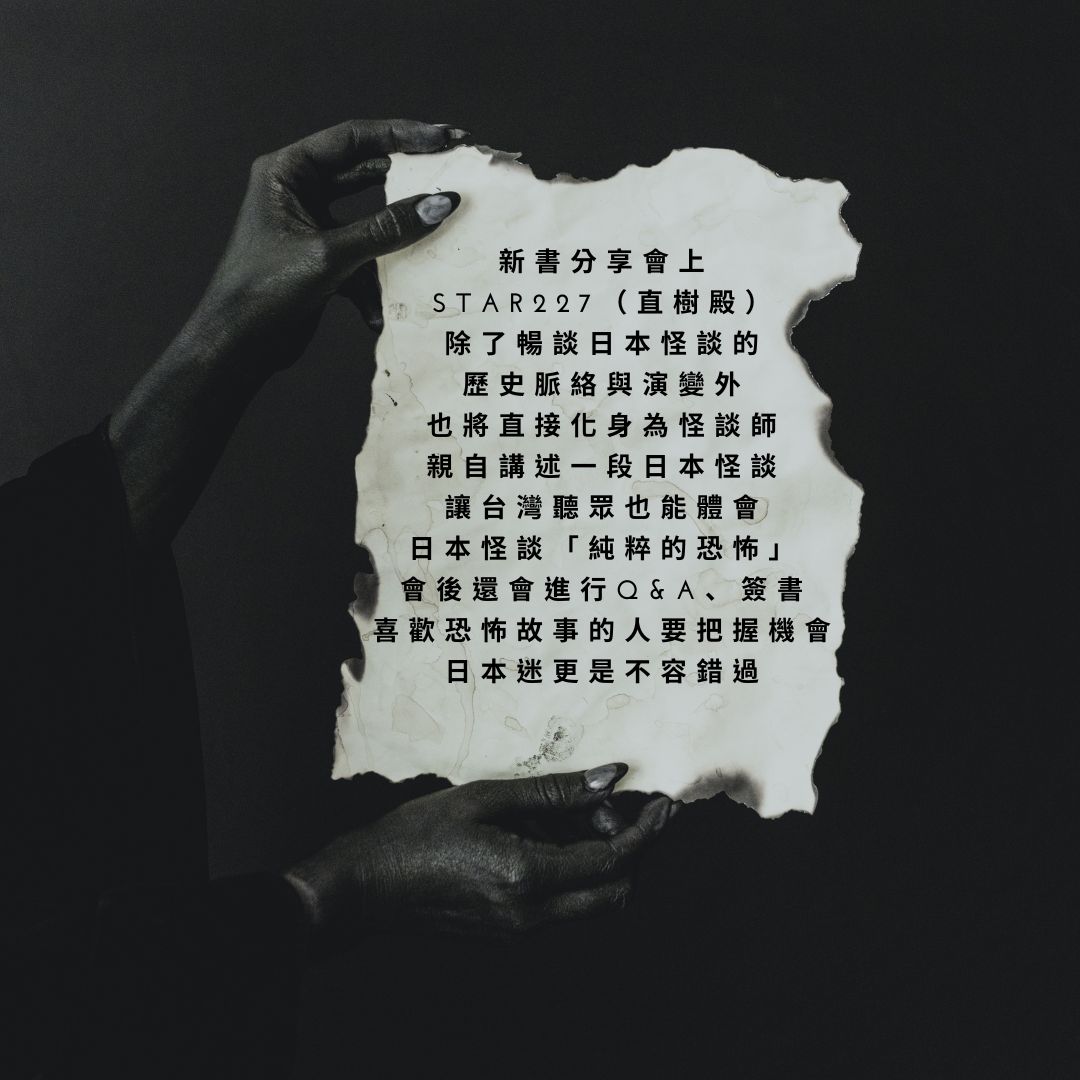 新書分享會上
STAR227（直樹殿）
除了暢談日本怪談的
歷史脈絡與演變外
也將直接化身為怪談師
親自講述一段日本怪談
讓台灣聽眾也能體會
日本怪談「純粹的恐怖」
會後還會進行Q&A、簽書
喜歡恐怖故事的人要把握機會
日本迷更是不容錯過